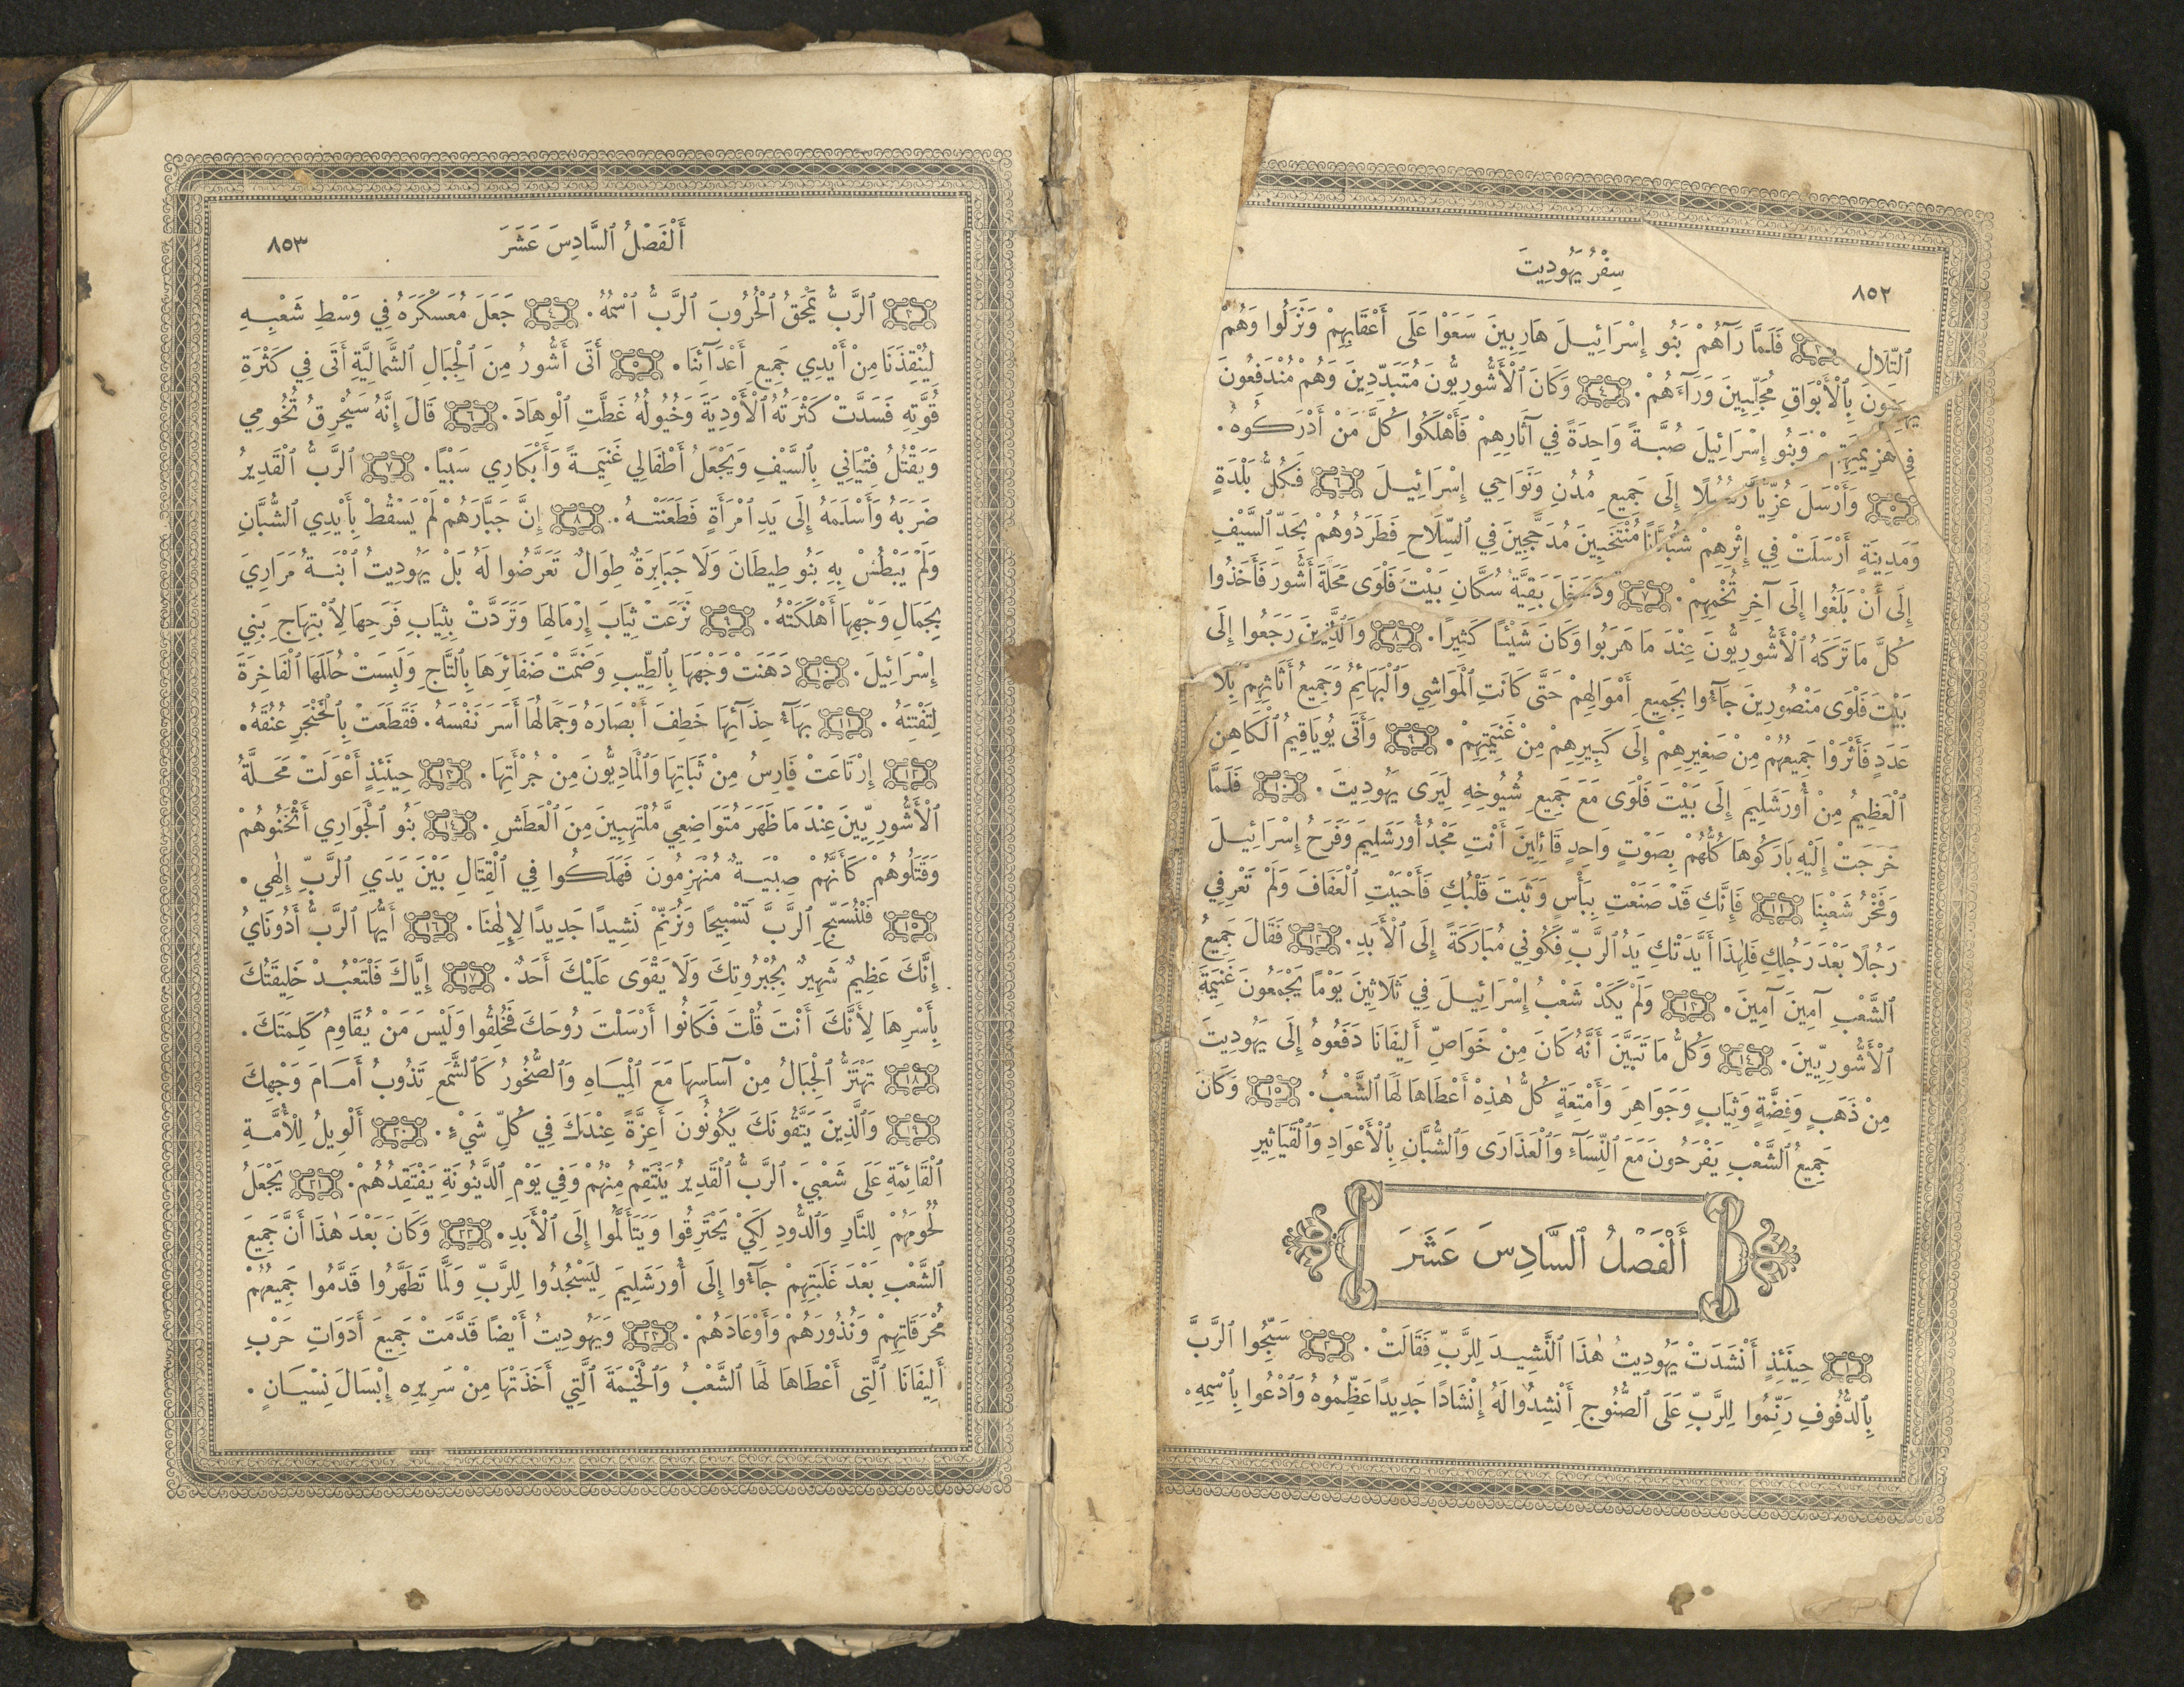 سِفْرُ يَهُودِيتَ
٨٥٢
ٱلتِّلَالِ ٣ فَلَمَّا رَآهُمْ بَنُو إِسْرَائِيلَ هَارِبِينَ سَعَوْا عَلَى أَعْقَابِهِمْ وَنَزَلُوا وَهُمْ
يَهْتِفُونَ بِٱلْأَبْوَاقِ مُجَلِّبِينَ وَرَآءَهُمْ. ٤ وَكَانَ ٱلْأَشُّورِيُّونَ مُتَبَدِّدِينَ وَهُمْ مُنْدَفِعُونَ
فِي هَزِيمَتِهِمْ وَبَنُو إِسْرَائِيلَ صُبَّةً وَاحِدَةً فِي آثَارِهِمْ فَأَهْلَكُوا كُلَّ مَنْ أَدْرَكُوهُ.
٥ وَأَرْسَلَ عُزِّيَّا رُسُلًا إِلَى جَمِيعِ مُدُنِ وَنَوَاحِي إِسْرَائِيلَ ٦ فَكُلُّ بَلْدَةٍ
وَمَدِينَةٍ أَرْسَلَتْ فِي إِثْرِهِمْ شُبَّانًا مُنْتَخَبِينَ مُدَجَّجِينَ فِي ٱلسِّلَاحِ فَطَرَدُوهُمْ بِحَدِّ ٱلسَّيْفِ
إِلَى أَنْ بَلَغُوا إِلَى آخِرِ تُخْمِهِمْ. ٧ وَدَخَلَ بَقِيَّةُ سُكَّانِ بَيْتَ فَلْوَى مَحَلَّةَ أَشُّورَ فَأَخَذُوا
كُلَّ مَا تَرَكَهُ ٱلْأَشُّورِيُّونَ عِنْدَ مَا هَرَبُوا وَكَانَ شَيْئًا كَثِيرًا. ٨ وَٱلَّذِينَ رَجَعُوا إِلَى
بَيْتَ فَلْوَى مَنْصُورِينَ جَآءُوا بِجَمِيعِ أَمْوَالِهِمْ حَتَّى كَانَتِ ٱلْمَوَاشِي وَٱلْبَهَائِمُ وَجَمِيعُ أَثَاثِهِمْ بِلَا
عَدَدٍ فَأَثْرَوْا جَمِيعُهُمْ مِنْ صَغِيرِهِمْ إِلَى كَبِيرِهِمْ مِنْ غَنِيمَتِهِمْ. ٩ وَأَتَى يُويَاقِيمُ ٱلْكَاهِنُ
ٱلْعَظِيمُ مِنْ أُورَشَلِيمَ إِلَى بَيْتَ فَلْوَى مَعَ جَمِيعِ شُيُوخِهِ لِيَرَى يَهُودِيتَ. ١٠ فَلَمَّا
خَرَجَتْ إِلَيْهِ بَارَكُوهَا كُلُّهُمْ بِصَوْتٍ وَاحِدٍ قَائِلِينَ أَنْتِ مَجْدُ أُورَشَلِيمَ وَفَرَحُ إِسْرَائِيلَ
وَفَخْرُ شَعْبِنَا ١١ فَإِنَّكِ قَدْ صَنَعْتِ بِبَأْسٍ وَثَبَتَ قَلْبُكِ فَأَحْبَبْتِ ٱلْعَفَافَ وَلَمْ تَعْرِفِي
رَجُلًا بَعْدَ رَجُلِكِ فَلِهٰذَا أَيَّدَتْكِ يَدُ ٱلرَّبِّ فَكُونِي مُبَارَكَةً إِلَى ٱلْأَبَدِ. ١٢ فَقَالَ جَمِيعُ
ٱلشَّعْبِ آمِينَ آمِينَ. ١٣ وَلَمْ يَكَدْ شَعْبُ إِسْرَائِيلَ فِي ثَلَاثِينَ يَوْمًا يَجْمَعُونَ غَنِيمَةَ
ٱلْأَشُّورِيِّينَ. ١٤ وَكُلُّ مَا تَبَيَّنَ أَنَّهُ كَانَ مِنْ خَوَاصِّ أَلِيفَانَا دَفَعُوهُ إِلَى يَهُودِيتَ
مِنْ ذَهَبٍ وَفِضَّةٍ وَثِيَابٍ وَجَوَاهِرَ وَأَمْتِعَةٍ كُلُّ هٰذِهْ أَعْطَاهَا لَهَا ٱلشَّعْبُ. ١٥ وَكَانَ
جَمِيعُ ٱلشَّعْبِ يَفْرَحُونَ مَعَ ٱلنِّسَآءِ وَٱلْعَذَارَى وَٱلشُّبَّانِ بِٱلْأَعْوَادِ وَٱلْقَيَاثِيرِ
أَلْفَصْلُ ٱلسَّادِسَ عَشَرَ
١ حِينَئِذٍ أَنْشَدَتْ يَهُودِيتُ هٰذَا ٱلنَّشِيدَ لِلرَّبِّ فَقَالَتْ. ٢ سَبِّحُوا ٱلرَّبَّ
بِٱلدُّفُوفِ رَنِّمُوا لِلرَّبِّ عَلَى ٱلصُّنُوجِ أَنْشِدُوا لَهُ إِنْشَادًا جَدِيدًا عَظِّمُوهُ وَٱدْعُوا بِٱسْمِهِ.
أَلْفَصْلُ ٱلسَّادِسَ عَشَرَ
٨٥٣
٣ ٱلرَّبُّ يَمْحَقُ ٱلْحُرُوبَ ٱلرَّبُّ ٱسْمُهُ. ٤ جَعَلَ مُعَسْكَرَهُ فِي وَسْطِ شَعْبِهِ
لِيُنْقِذَنَا مِنْ أَيْدِي جَمِيعِ أَعْدَآئِنَا. ٥ أَتَى أَشُّورُ مِنَ ٱلْجِبَالِ ٱلشَّمَالِيَّةِ أَتَى فِي كَثْرَةِ
قُوَّتِهِ فَسَدَّتْ كَثْرَتُهُ ٱلْأَوْدِيَةَ وَخُيُولُهُ غَطَّتِ ٱلْوِهَادَ. ٦ قَالَ إِنَّهُ سَيُحْرِقُ تُخُومِي
وَيَقْتُلُ فِتْيَانِي بِٱلسَّيْفِ وَيَجْعَلُ أَطْفَالِي غَنِيمَةً وَأَبْكَارِي سَبْيًا. ٧ ٱلرَّبُّ ٱلْقَدِيرُ
ضَرَبَهُ وَأَسْلَمَهُ إِلَى يَدِ ٱمْرَأَةٍ فَطَعَنَتْهُ. ٨ إِنَّ جَبَّارَهُمْ لَمْ يَسْقُطْ بِأَيْدِي ٱلشُّبَّانِ
وَلَمْ يَبْطُشْ بِهِ بَنُو طِيطَانَ وَلَا جَبَابِرَةٌ طِوَالٌ تَعَرَّضُوا لَهُ بَلْ يَهُودِيتُ ٱبْنَةُ مَرَارِيَ
بِجَمَالِ وَجْهِهَا أَهْلَكَتْهُ. ٩ نَزَعَتْ ثِيَابَ إِرْمَالِهَا وَتَرَدَّتْ بِثِيَابِ فَرَحِهَا لِٱبْتِهَاجِ بَنِي
إِسْرَائِيلَ. ١٠ دَهَنَتْ وَجْهَهَا بِٱلطِّيبِ وَضَمَّتْ ضَفَائِرَهَا بِٱلتَّاجِ وَلَبِسَتْ حُلَلَهَا ٱلْفَاخِرَةَ
لِتَفْتِنَهُ. ١١ بَهَآءُ حِذَآئِهَا خَطِفَ أَبْصَارَهُ وَجَمَالُهَا أَسَرَ نَفْسَهُ. فَقَطَعَتْ بِٱلْخَنْجَرِ عُنُقَهُ.
١٢ إِرْتَاعَتْ فَارِسُ مِنْ ثَبَاتِهَا وَٱلْمَادِيُّونَ مِنْ جُرْأَتِهَا. ١٣ حِينَئِذٍ أَعْوَلَتْ مَحَلَّةُ
ٱلْأَشُّورِيِّينَ عِنْدَ مَا ظَهَرَ مُتَوَاضِعِيَّ مُلْتَهِبِينَ مِنَ ٱلْعَطَشِ. ١٤ بَنُو ٱلْجَوَارِي أَثْخَنُوهُمْ
وَقَتَلُوهُمْ كَأَنَّهُمْ صِبْيَةٌ مُنْهَزِمُونَ فَهَلَكُوا فِي ٱلْقِتَالِ بَيْنَ يَدَيِ ٱلرَّبِّ إِلٰهِي.
١٥ فَلْنُسَبِّحِ ٱلرَّبَّ تَسْبِيحًا وَنُرَنِّمْ نَشِيدًا جَدِيدًا لِإِلٰهِنَا. ١٦ أَيُّهَا ٱلرَّبُّ أَدُونَايُ
إِنَّكَ عَظِيمٌ شَهِيرٌ بِجُبْرُوتِكَ وَلَا يَقْوَى عَلَيْكَ أَحَدٌ. ١٧ إِيَّاكَ فَلْتَعْبُدْ خَلِيقَتُكَ
بِأَسْرِهَا لِأَنَّكَ أَنْتَ قُلْتَ فَكَانُوا أَرْسَلْتَ رُوحَكَ فَخُلِقُوا وَلَيْسَ مَنْ يُقَاوِمُ كَلِمَتَكَ.
١٨ تَهْتَزُّ ٱلْجِبَالُ مِنْ آسَاسِهَا مَعَ ٱلْمِيَاهِ وَٱلصُّخُورُ كَٱلشَّمَعِ تَذُوبُ أَمَامَ وَجْهِكَ
١٩ وَٱلَّذِينَ يَتَّقُونَكَ يَكُونُونَ أَعِزَّةً عِنْدَكَ فِي كُلِّ شَيْءٍ. ٢٠ أَلْوِيلُ لِلْأُمَّةِ
ٱلْقَائِمَةِ عَلَى شَعْبِيَ. ٱلرَّبُّ ٱلْقَدِيرُ يَنْتَقِمُ مِنْهُمْ وَفِي يَوْمِ ٱلدَّيْنُونَةِ يَفْتَقِدُهُمْ. ٢١ يَجْعَلُ
لُحُومَهُمْ لِلنَّارِ وَٱلدُّودِ لِكَيْ يَحْتَرِقُوا وَيَتَأَلَّمُوا إِلَى ٱلْأَبَدِ. ٢٢ وَكَانَ بَعْدَ هٰذَا أَنَّ جَمِيعَ
ٱلشَّعْبِ بَعْدَ غَلَبَتِهِمْ جَآءُوا إِلَى أُورَشَلِيمَ لِيَسْجُدُوا لِلرَّبِّ وَلَمَّا تَطَهَّرُوا قَدَّمُوا جَمِيعُهُمْ
مُحْرَقَاتِهِمْ وَنُذُورَهُمْ وَأَوْعَادَهُمْ. ٢٣ وَيَهُودِيتُ أَيْضًا قَدَّمَتْ جَمِيعَ أَدَوَاتِ حَرْبِ
أَلِيفَانَا ٱلَّتِى أَعْطَاهَا لَهَا ٱلشَّعْبُ وَٱلْخَيْمَةَ ٱلَّتِي أَخَذَتْهَا مِنْ سَرِيرِهِ إِبْسَالَ نِسْيَانٍ.